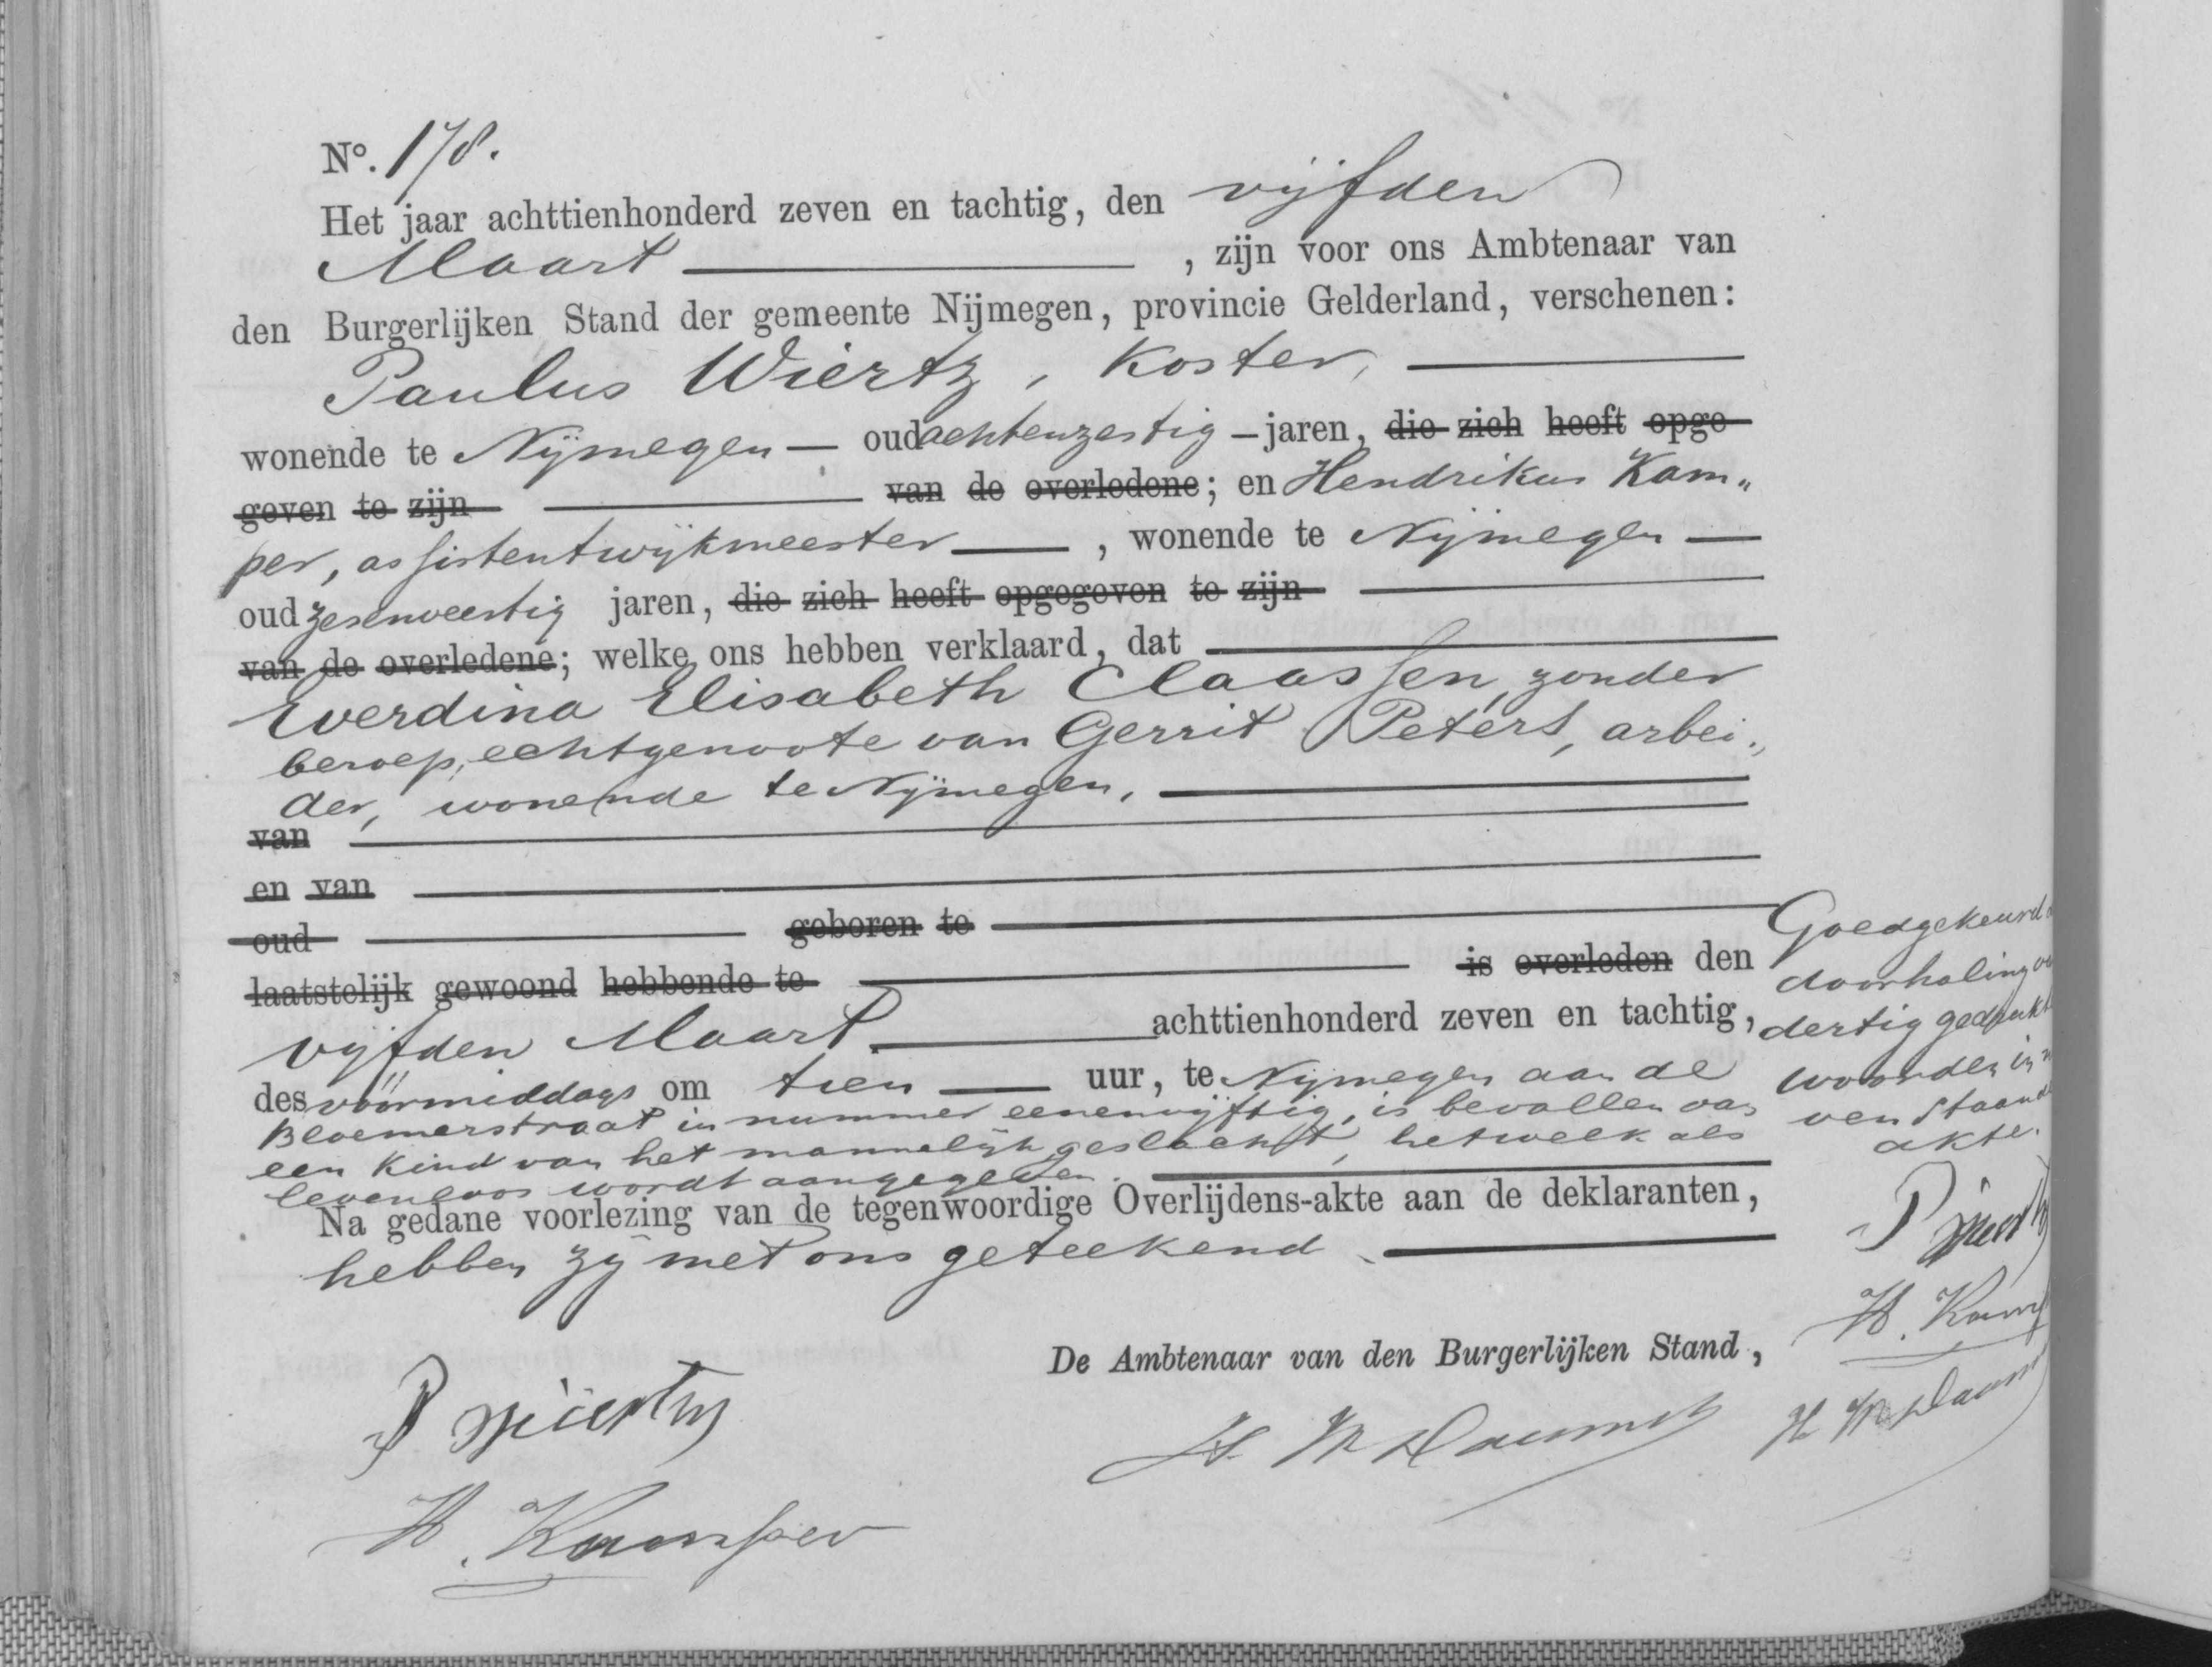 Nº. 178.
Het jaar achttienhonderd zeven en tachtig, den vijfden
Maart , zijn voor ons Ambtenaar van
den Burgerlijken Stand der gemeente Nijmegen, provincie Gelderland, verschenen:
Paulus Wiertz, Koster,
wonende te Nijmegen — oud achtenzestig – jaren, die zich heeft opge-
geven te zijn van de overledene; en Hendrikus Kam„
per, assistentwijkmeester , wonende te Nijmegen —
oud zesenveertig jaren, die zich heeft opgegeven te zijn
van de overledene; welke ons hebben verklaard, dat
Everdina Elisabeth Claassen, zonder
beroep, echtgenoote van Gerrit Peters, arbei„
der, wonende te Nijmegen,
van
en van
oud geboren te
laatstelijk gewoond hebbende te is overleden den
vijfden Maart achttienhonderd zeven en tachtig,
des voormiddags om tien uur, te Nijmegen aan de
Bloemerstraat in nummer eenenvijftig, is bevallen van
een Kind van het mannelijk geslacht, hetwelk als
levenloos wordt aangegeven.
Na gedane voorlezing van de tegenwoordige Overlijdens-akte aan de deklaranten,
hebben zij met ons geteekend.
De Ambtenaar van den Burgerlijken Stand,
P Wiertz
H. Kamper
Goedgekeurd
doorhaling
dertig gedrukt
woorden in
venstaand
akte.
P Wiertz
H. Kamp